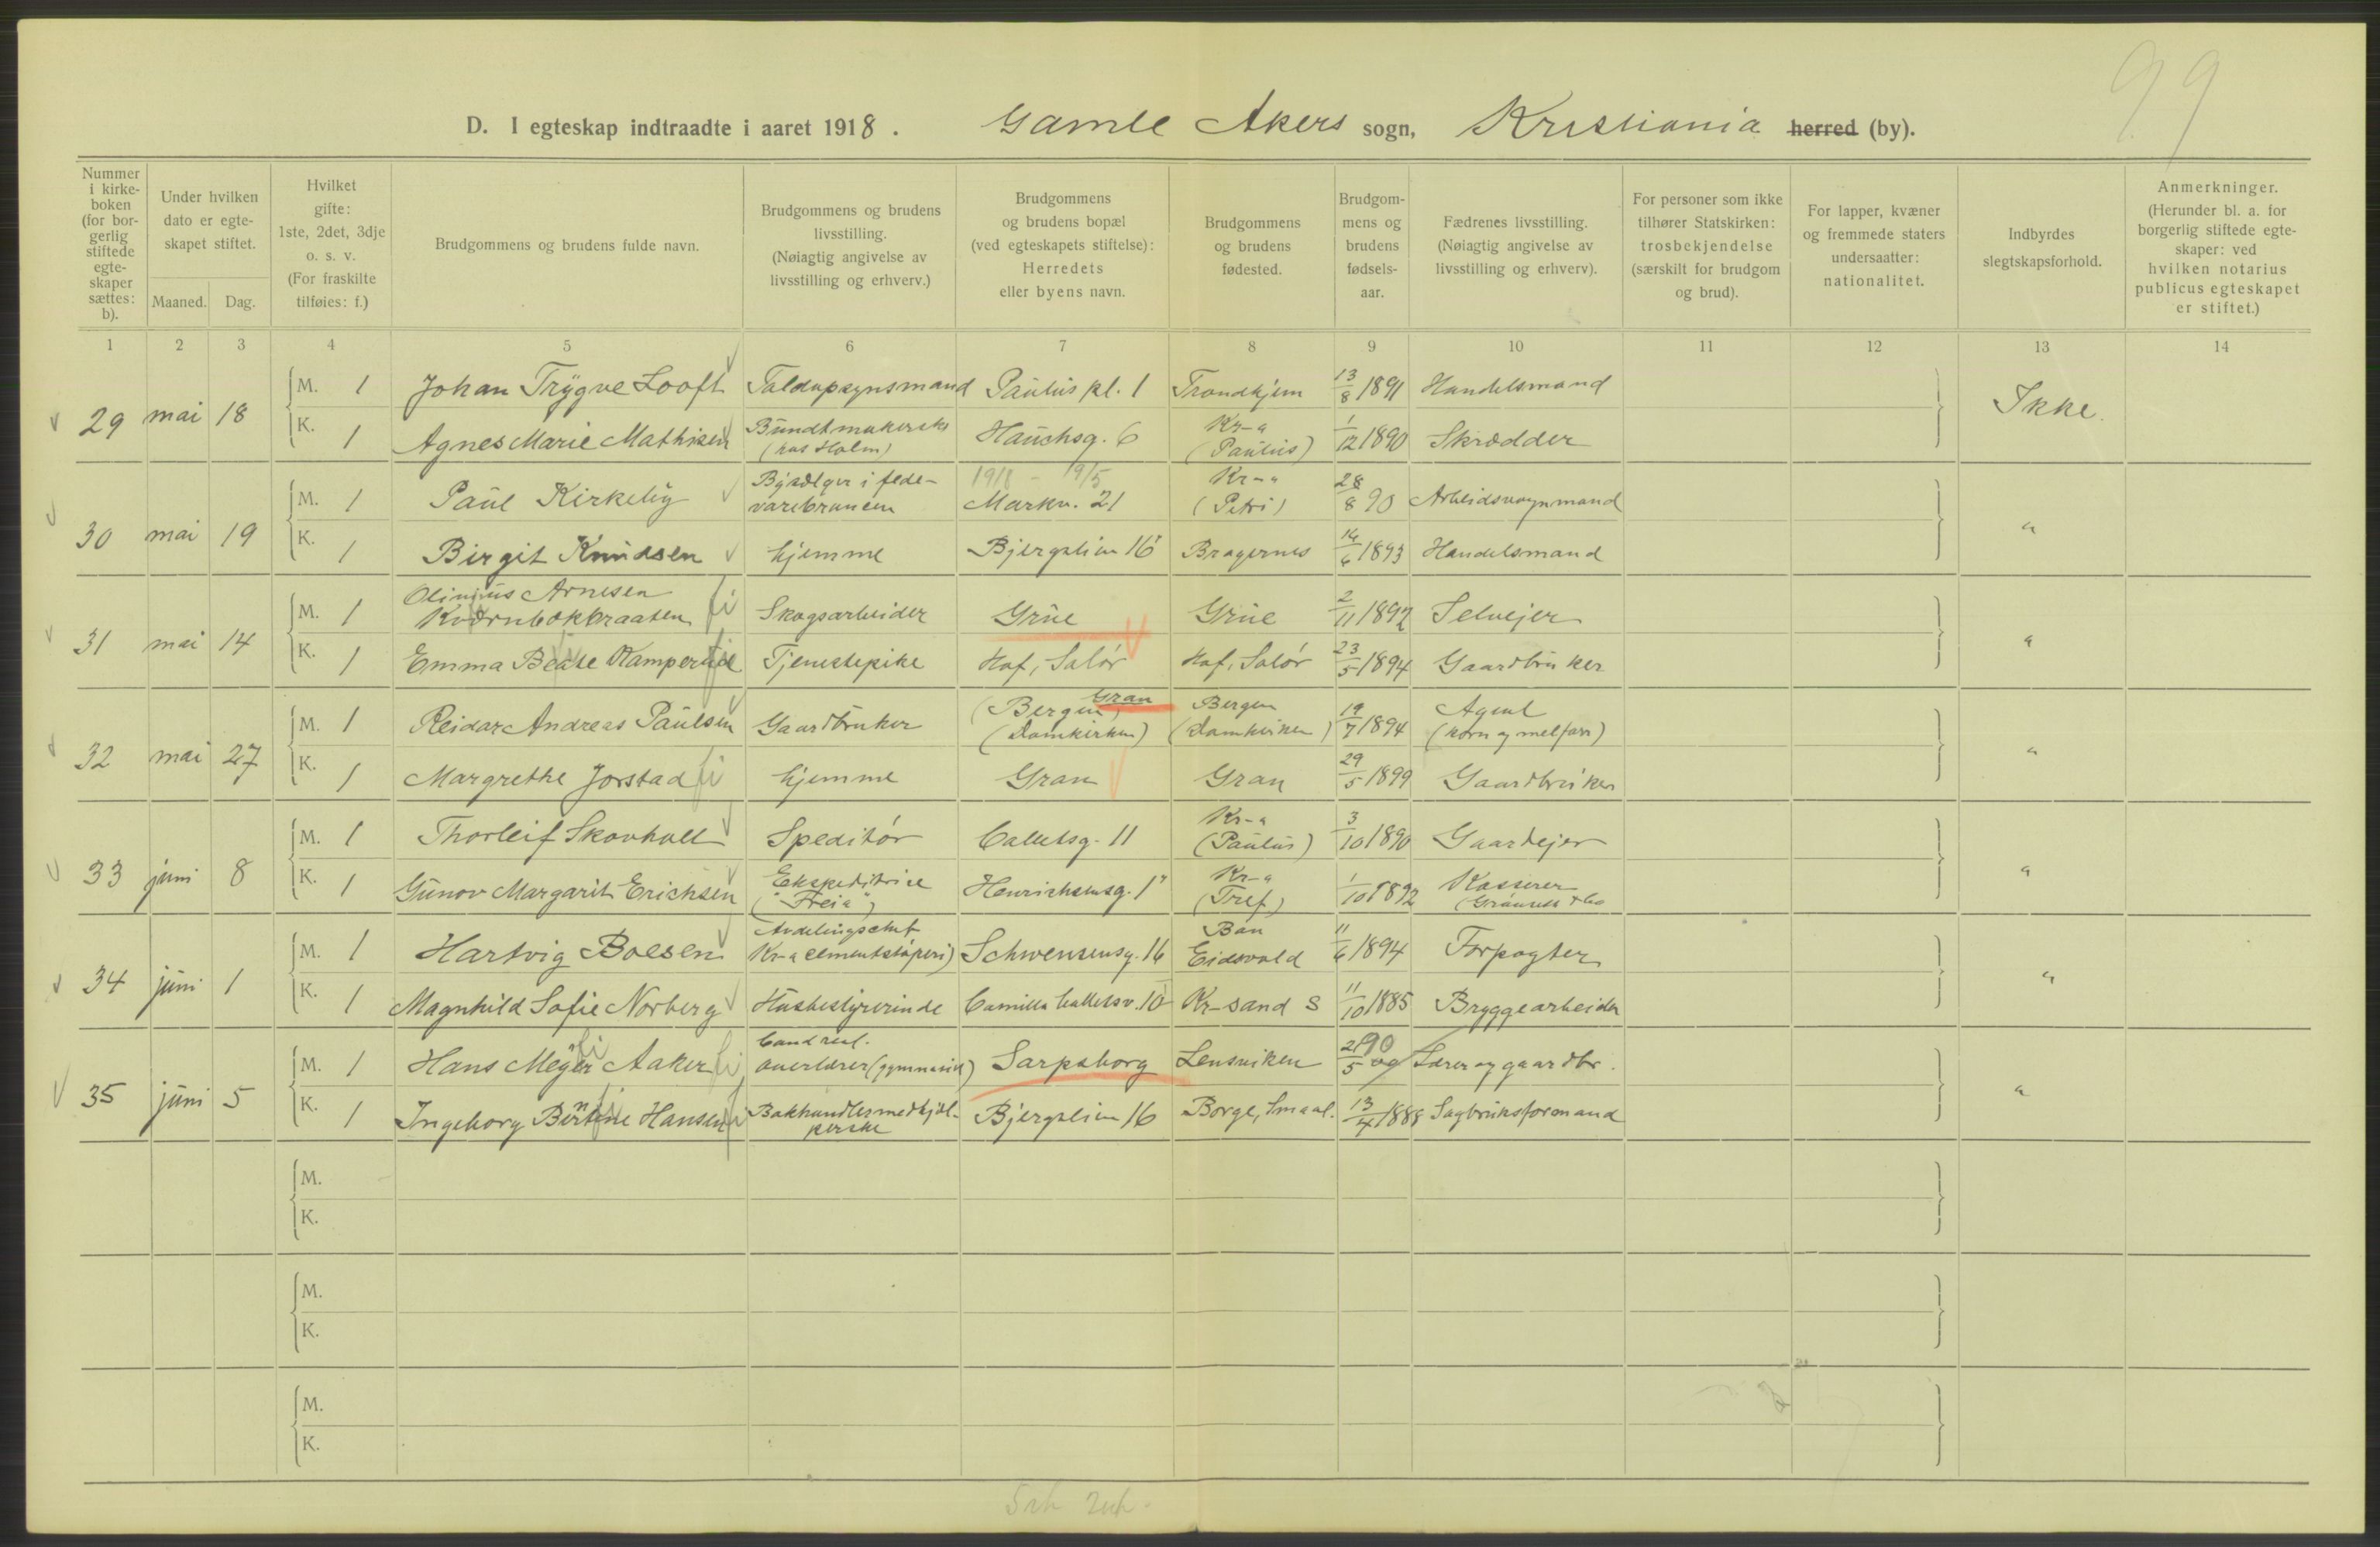 99
D. I egteskap indtraadte i aaret 1918. Gamle Akers sogn, Kristiania herred (by).
Nummer i kirkeboken (for borgerlig stiftede egteskaper sættes: b).
Under hvilken dato er egteskapet stiftet.
Maaned. Dag.
Hvilket gifte: 1ste, 2det, 3dje o. s. v. (For fraskilte tilføies: f.)
Brudgommens og brudens fulde navn.
Brudgommens og brudens livsstilling. (Nøiagtig angivelse av livsstilling og erhverv.)
Brudgommens og brudens bopæl (ved egteskapets stiftelse): Herredets eller byens navn.
Brudgommens og brudens fødested.
Brudgommens og brudens fødselsaar.
Fædrenes livsstilling. (Nøiagtig angivelse av livsstilling og erhverv).
For personer som ikke tilhører Statskirken: trosbekjendelse (særskilt for brudgom og brud).
For lapper, kvæner og fremmede staters undersaatter: nationalitet.
Indbyrdes slegtskapsforhold.
Anmerkninger. (Herunder bl. a. for borgerlig stiftede egteskaper: ved hvilken notarius publicus egteskapet er stiftet.)
1 2 3 4 5 6 7 8 9 10 11 12 13 14
29 mai 18 M. 1 Johan Trygve Looft Toldopsynsmand Paulus pl. 1 Trondhjem 13/8 1891 Handelsmand Ikke.
K. 1 Agnes Marie Mathisen Bundtmakerske (hos Holm) Hauchsg. 6 Kr-a (Paulus) 1/12 1890 Skrædder
1918 - 19/5
30 mai 19 M. 1 Paul Kirkeby Bysælger i fede-varebranchen Markv. 21 Kr-a (Petri) 28/8 90 Arbeidsvognmand "
K. 1 Birgit Knudsen hjemme Bjergslien 16 Bragernes 14/6 1893 Handelsmand
31 mai 14 M. 1 Olinius Arnesen Kværnbækbraaten Skogsarbeider Grue Grue 2/11 1892 Selveier "
K. 1 Emma Beate Tjenestepike Hof, Solør Hof, Solør 23/5 1894 Gaardbruker
32 mai 27 M. 1 Reidar Andreas Paulsen Gaardbruker (Bergen) Gran (Domkirken) Bergen (Domkirken) 19/7 1894 Agent (korn og melforr) "
K. 1 Margrethe Jorstad hjemme Gran Gran 29/5 1899 Gaardbruker
33 juni 8 M. 1 Thorleif Skovholt Speditør Calletsg. 11 Kr-a (Paulus) 3/10 1890 Gaardejer "
K. 1 Gunov Margarit Erichsen Ekspeditrice ("Freia") Henrichsensg. 1 Kr-a (Tref) 1/10 1892 Kasserer
34 juni 1 M. 1 Hartvig Boesen Avdelingschef Kr-a cementstøperi) Schwensensg. 16 Eidsvold 11/6 1894 Forpagter "
K. 1 Magnhild Sofie Norberg Husbestyrerinde Camilla Colletsv. 10 Kr-sand S 11/10 1885 Bryggearbeider
35 juni 5 M. 1 Hans Meyer Aaker Cand real. overlærer (gymnasiet) Sarpsborg Lensviken 21/5 90 Lærer og gaardbr. "
K. 1 Ingeborg Bertine Hansen Bokhandlermedhjæl-perske Bjergslien 16 Borge, Smaal. 13/4 1888 Sagbruksformand
M.
K.
M.
K.
M.
K.